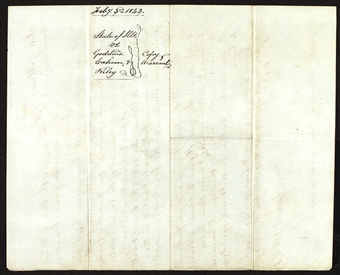 Feby 5th 1843.
State of Ills.
vs
Goddard
Calvin, &
Riley
Copy
Warrant